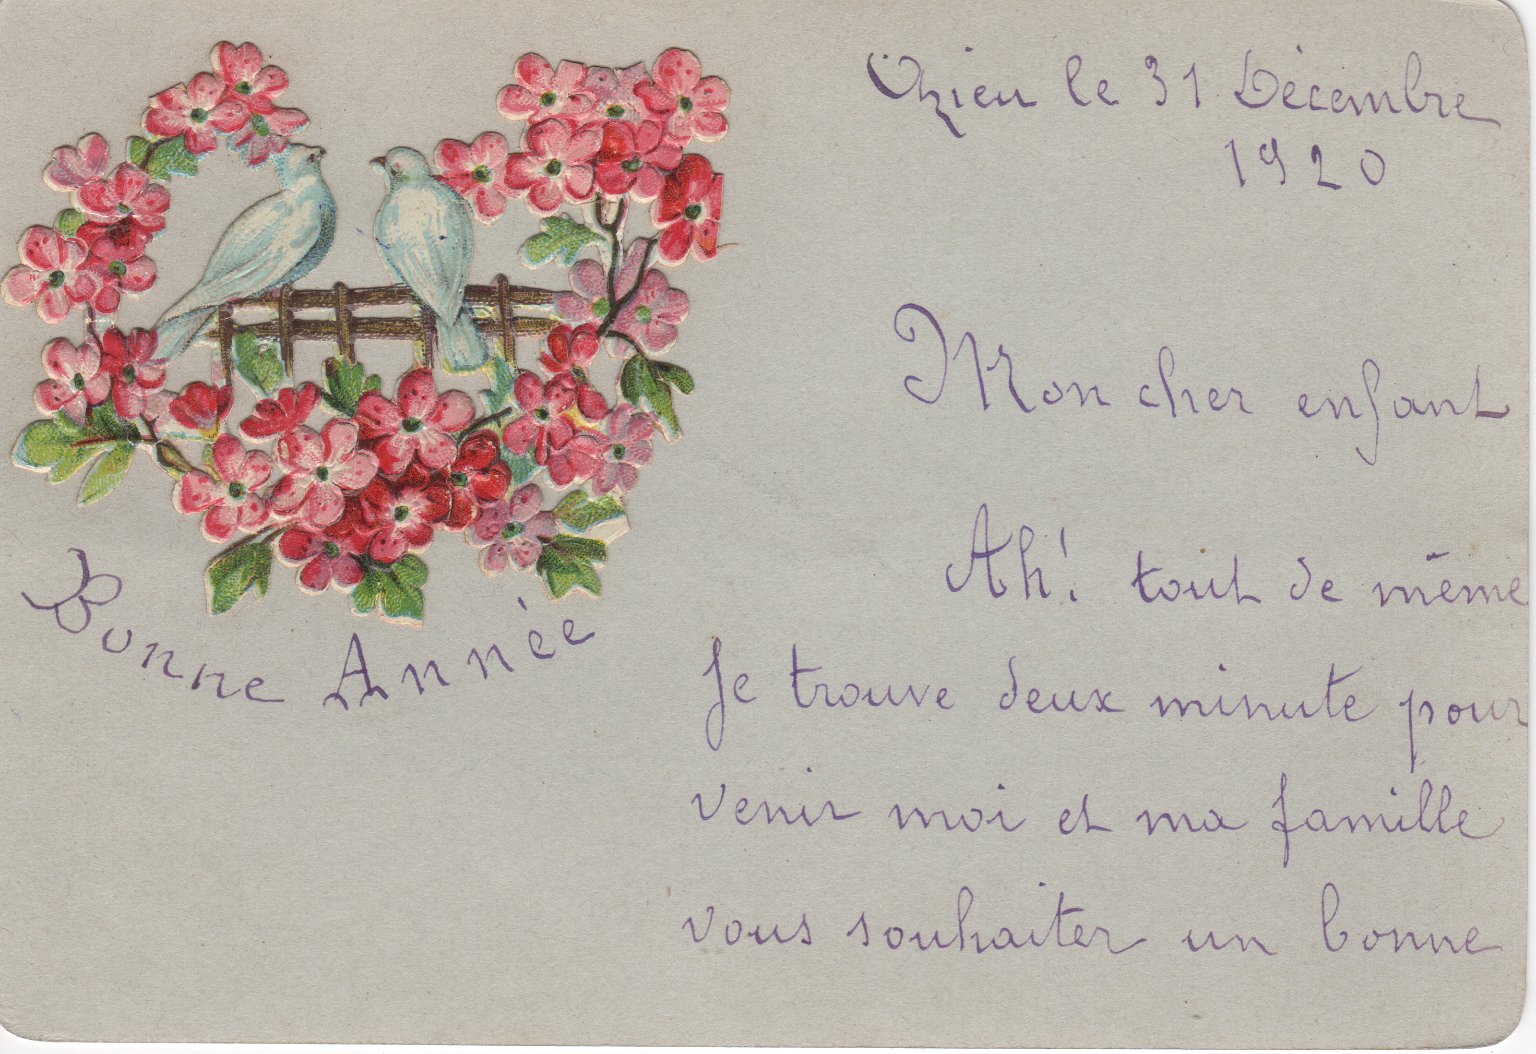 Ozieu le 31 Décembre
1920
Mon cher enfant
Ah! tout de même
Je trouve deux minute pour
venir moi et ma famille
vous souhaiter un bonne
Bonne Année